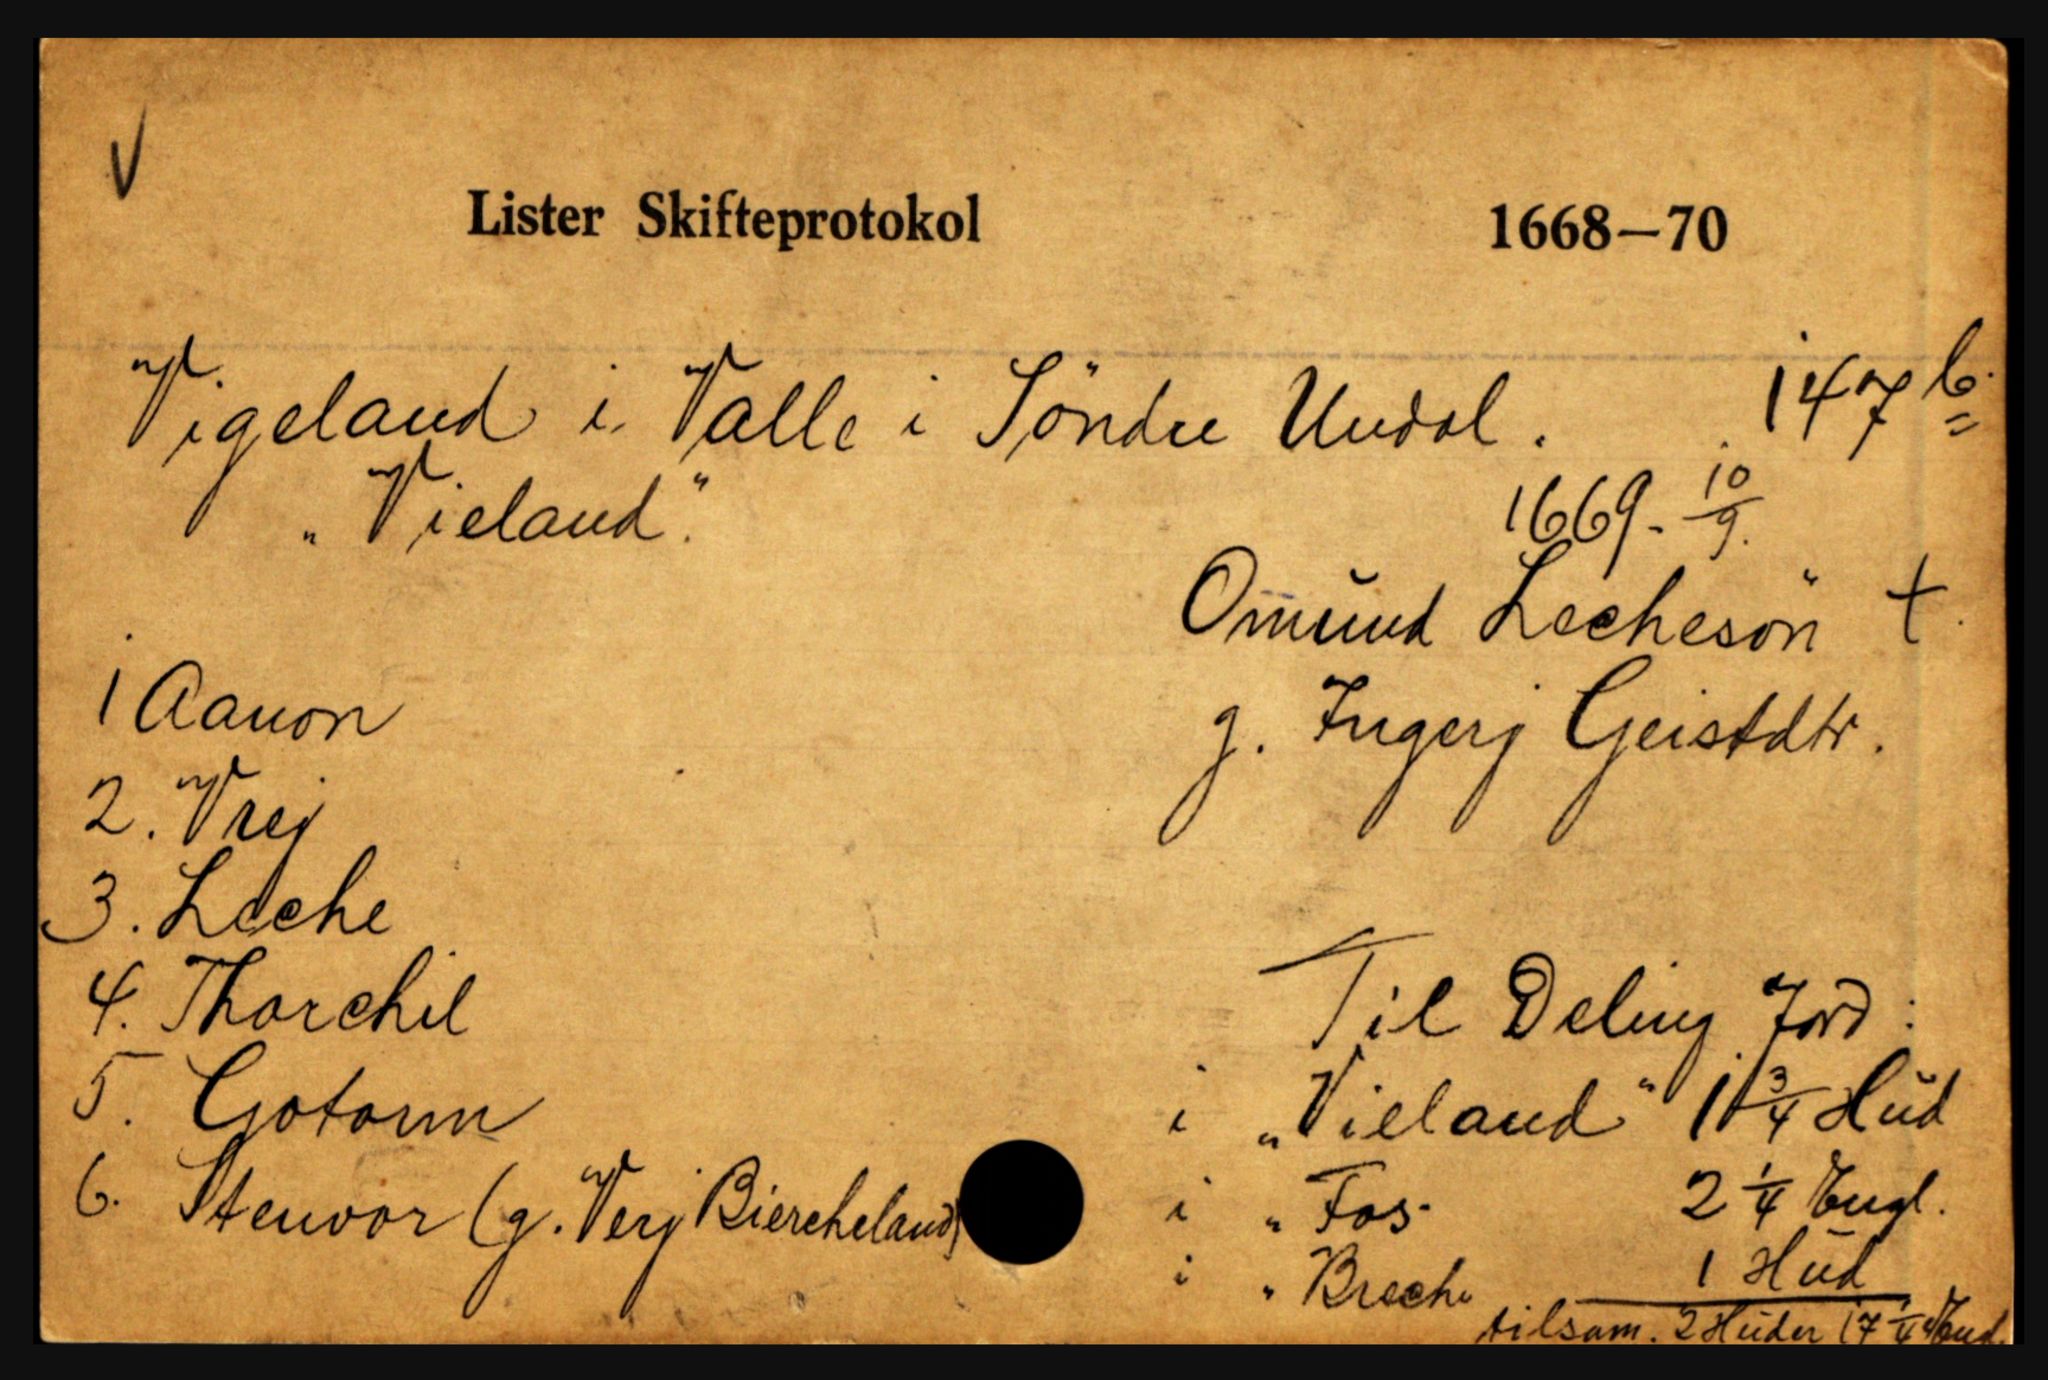 V
Lister Skifteprotokol 1668—70
Vigeland i Valle i Söndre Undal. 147 b.
"Vieland". 1669 - 10/9.
Omund Lecheson †.
g. Ingerj Geistdtr.
1 Aanon
2. Vrej
3. Leche
4. Thorchil
5. Gotorm
6. Stenvor (g. Verj Biercheland)
Til Deling Jord:
i "Vieland" 1 3/4 Hud
i " Fos 2 1/4 Engl.
i " Breche 1 Hud
tilsam. 2 Huder 17 1/4